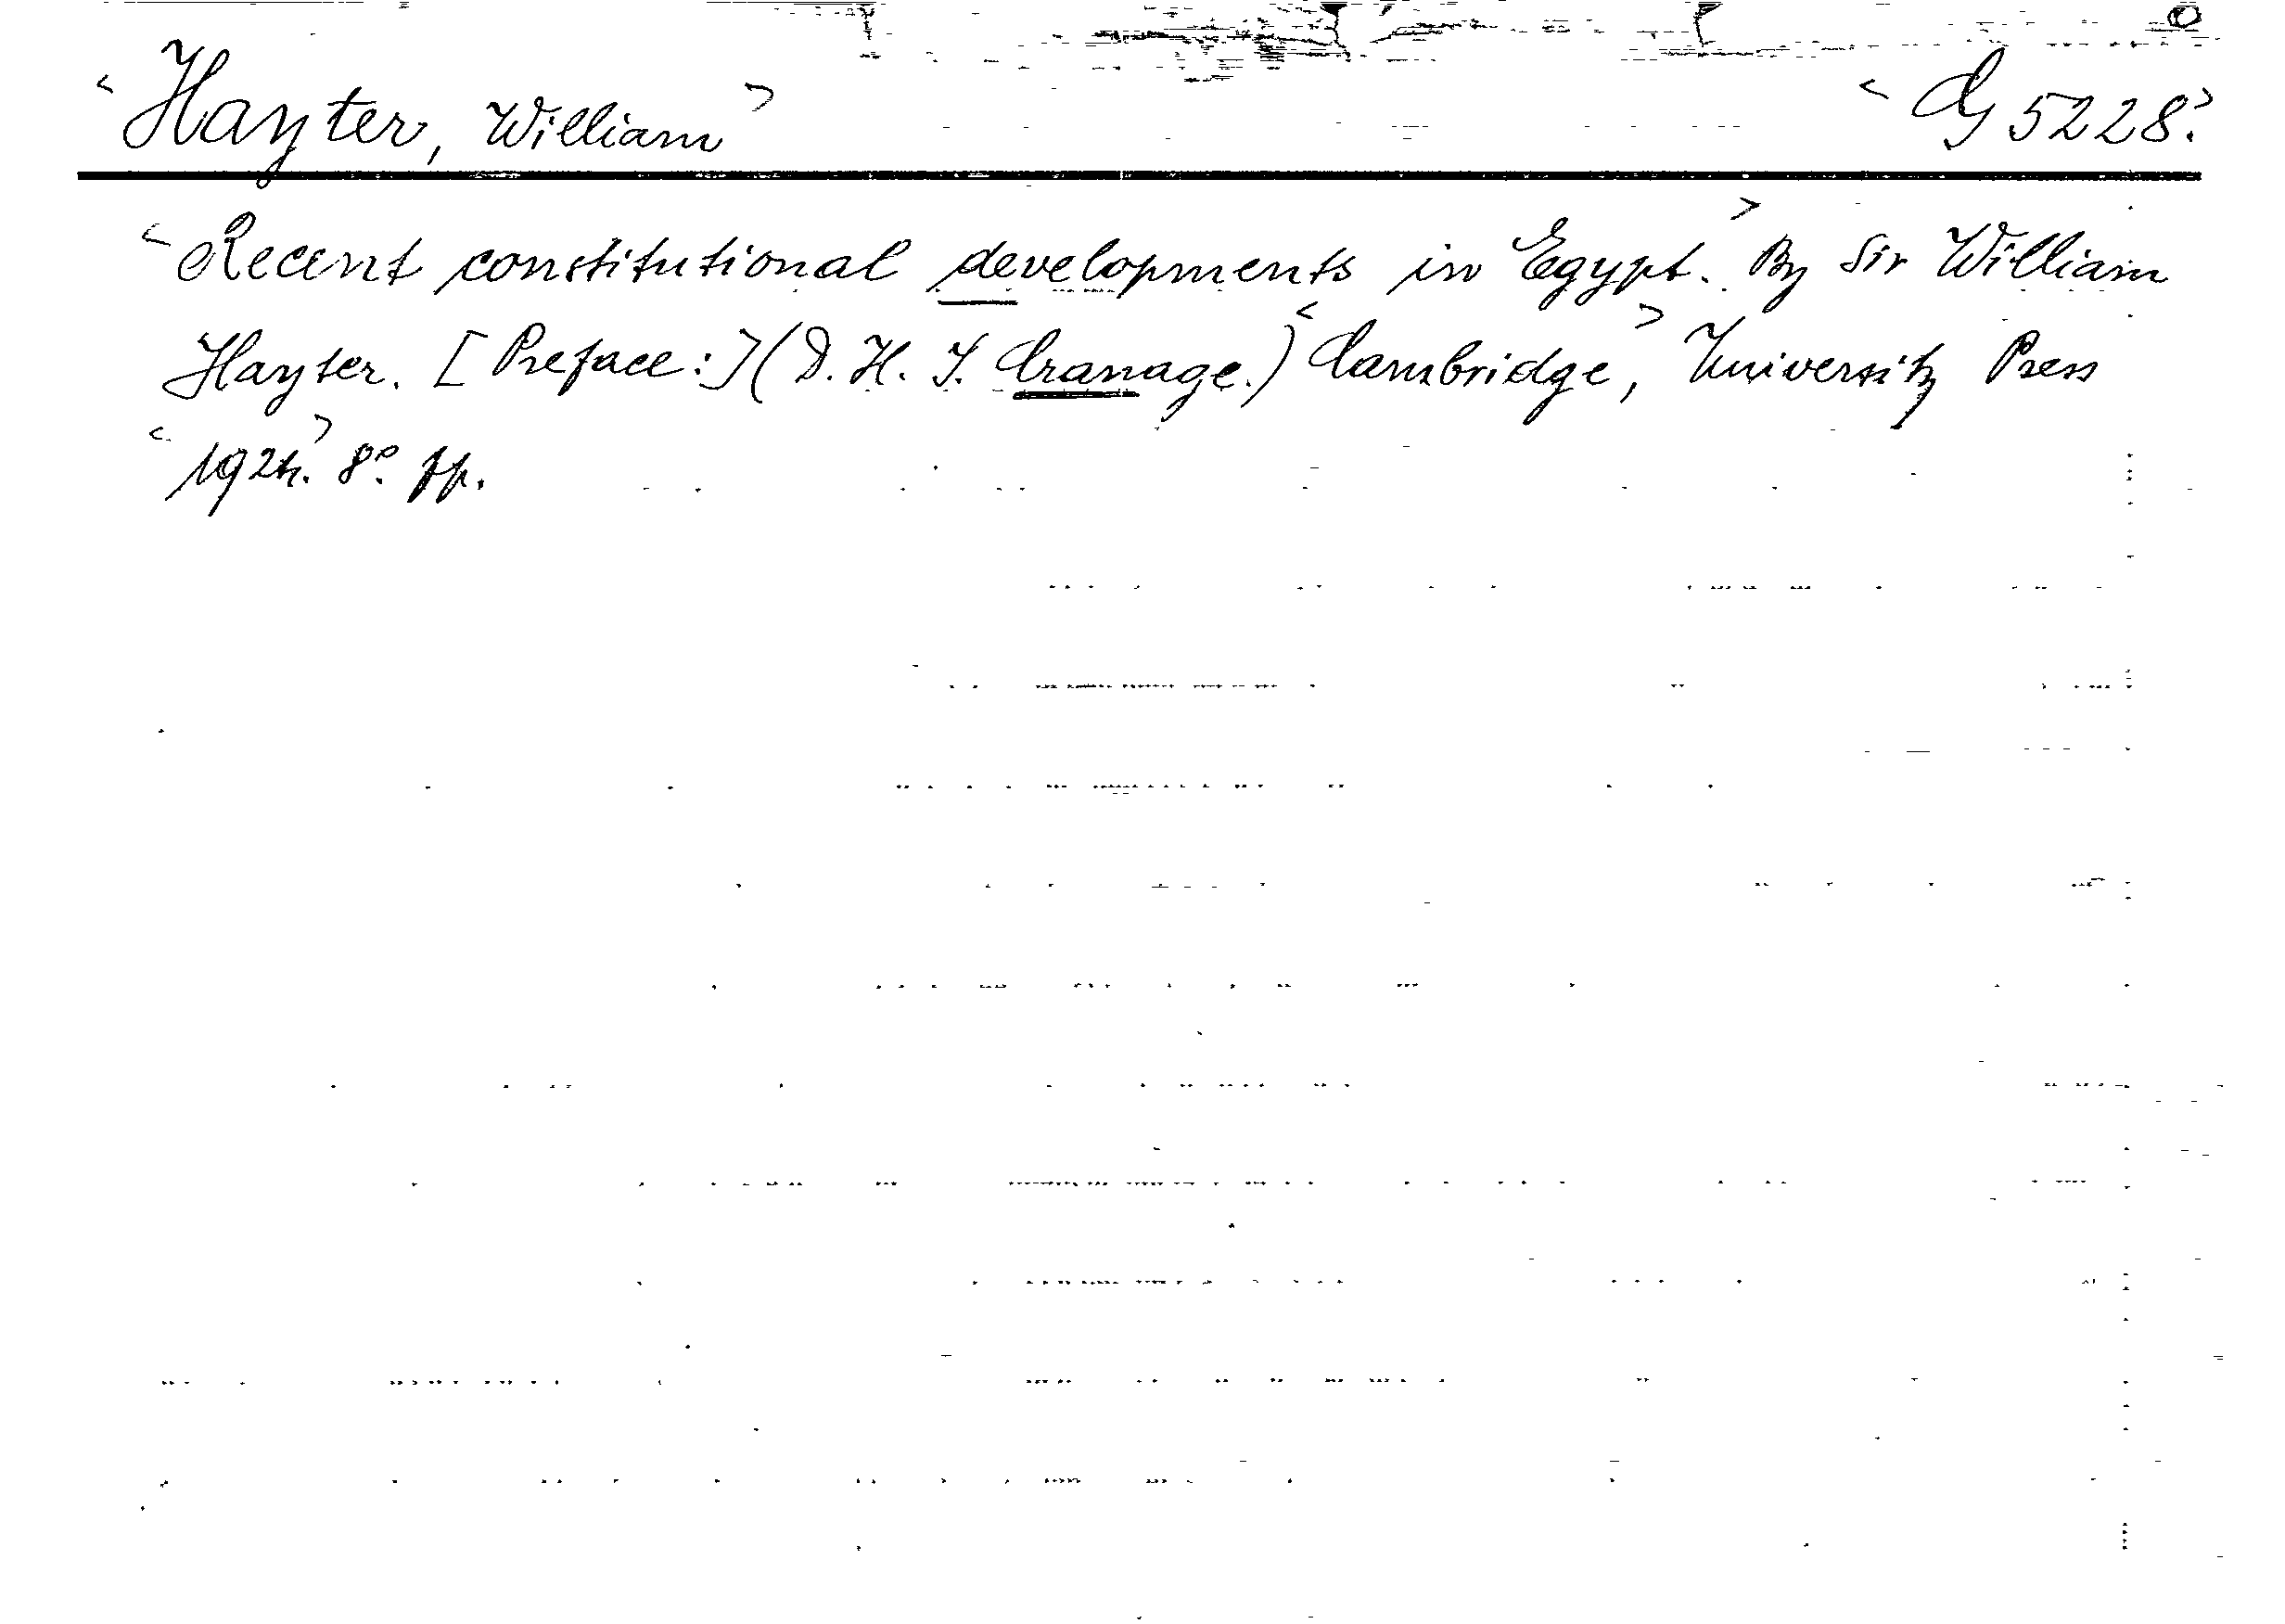 <Hayter, William> <G 5228.>
<Recent constitutional developments in Egypt.> By Sir William
Hayter. [Preface:] (D. H. S. Cranage.) <Cambridge,> University Press
<1924.> 8°. pp.